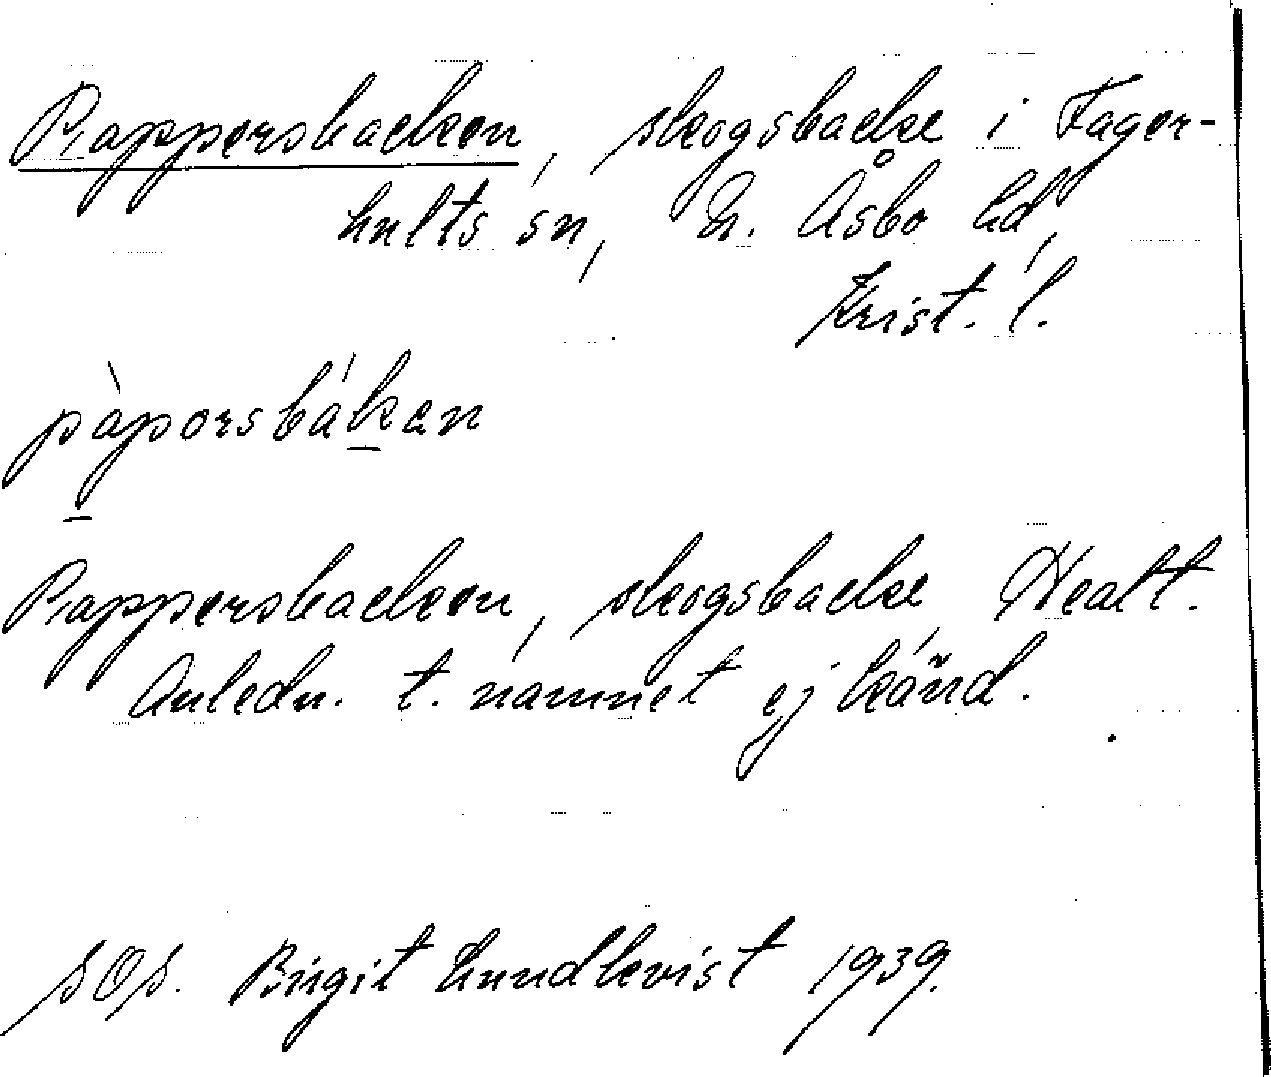 Pappersbacken, skogsbacke i Fager-
hults sn, N. Åsbo hd,
Krist. l.
pàpørsbákan
Pappersbacken, skogsbacke
Anledn. t. namnet ej känd.
Birgit Lundkvist 1939.